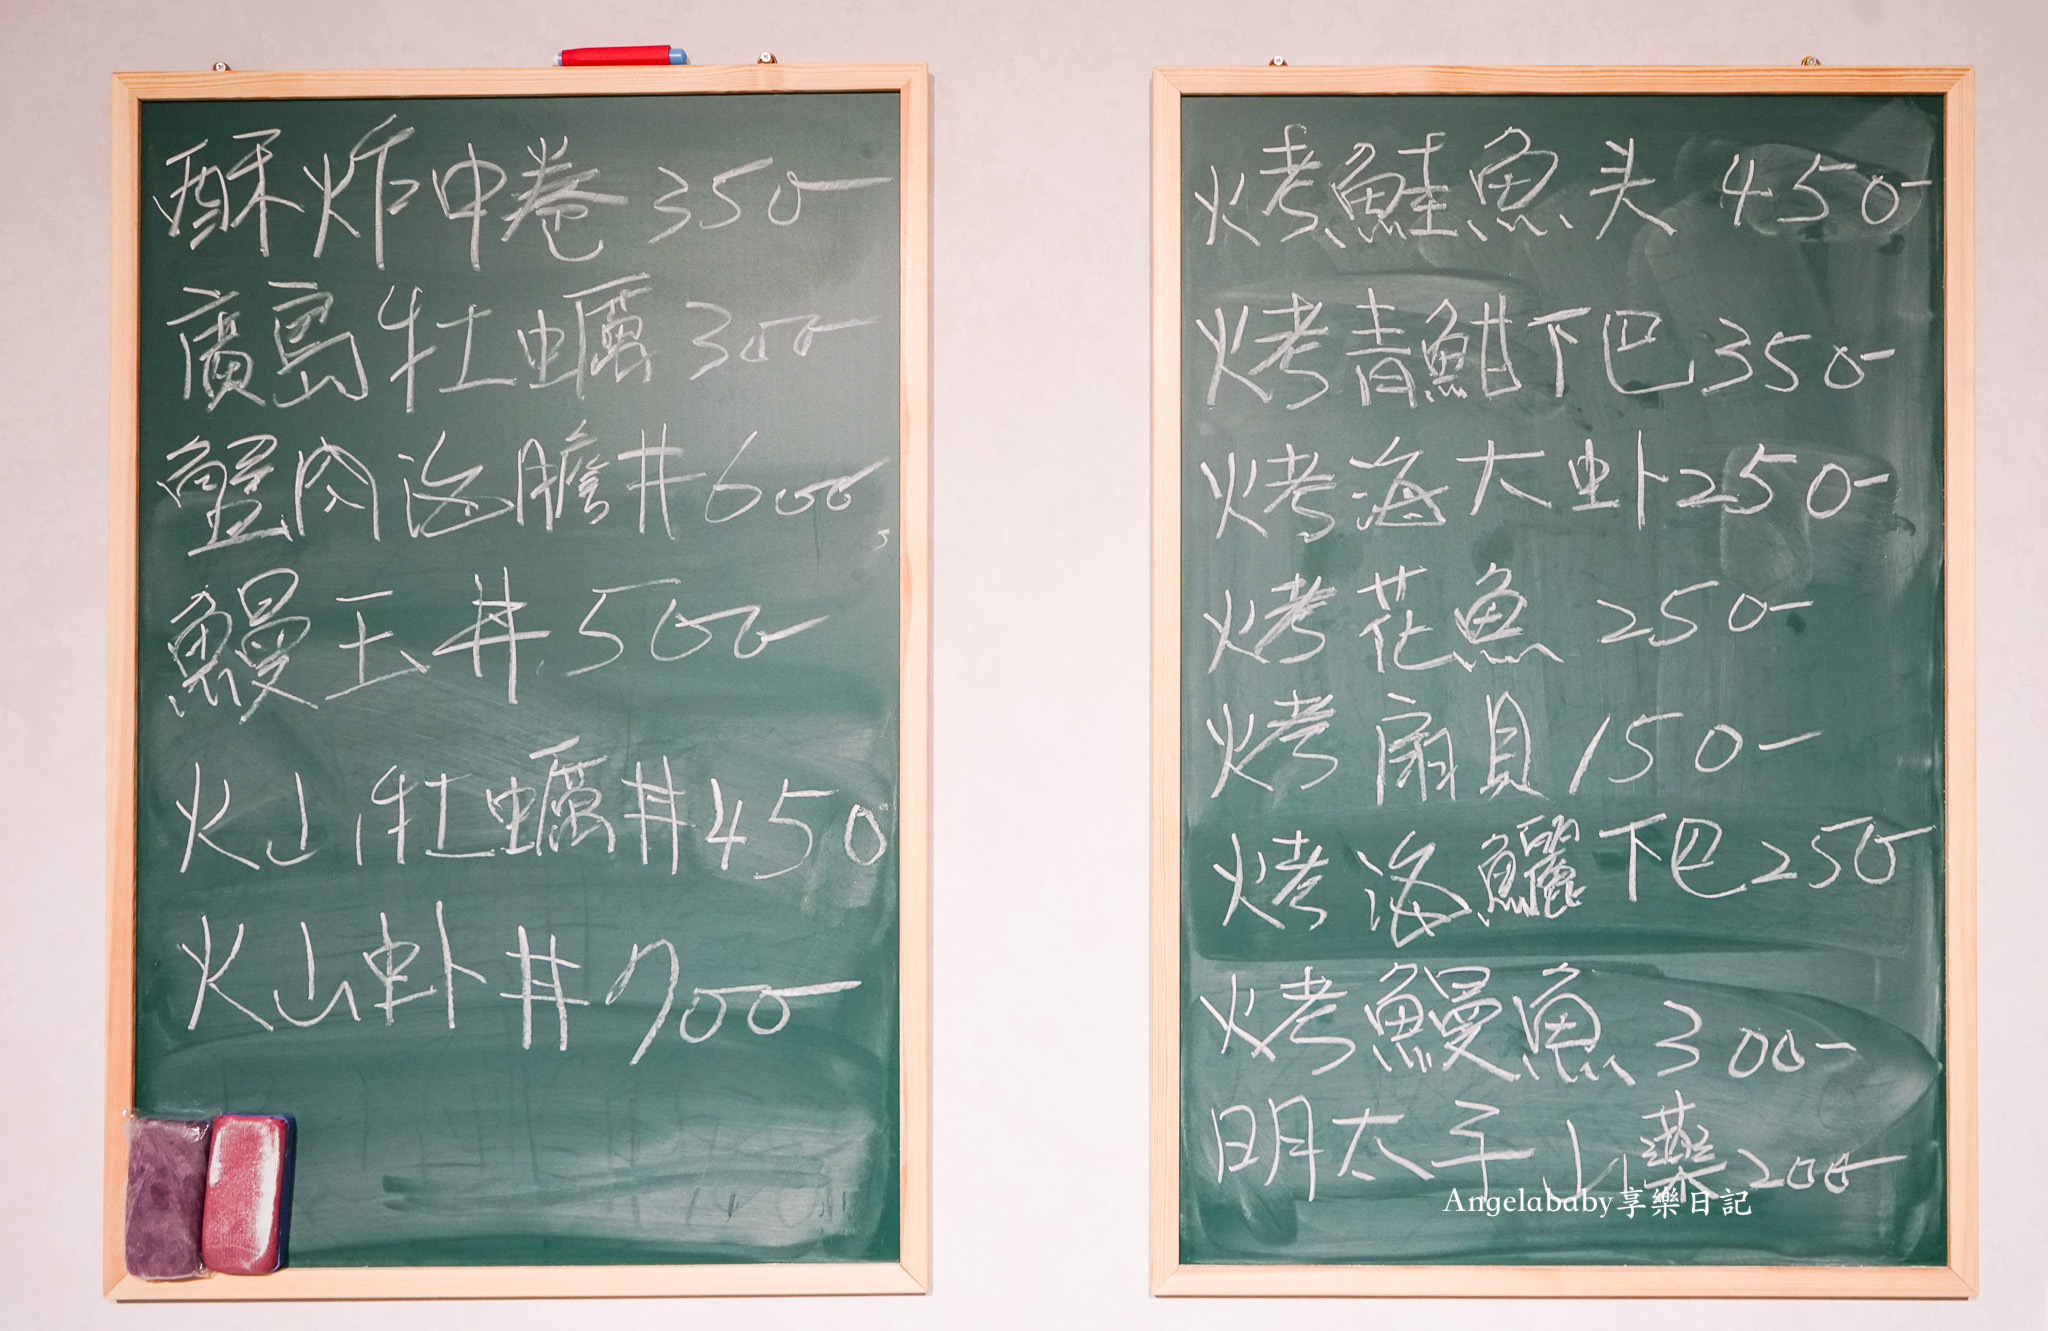 酥炸中卷 350-
廣島牡蠣 300-
蟹肉海膽丼 600-
鰻玉丼 500-
火山牡蠣丼 450
火山虾丼 700-
烤鮭魚头 450-
烤青魽下巴 350-
烤海大虾 250-
烤花魚 250-
烤扇貝 150-
烤海鱺下巴 250-
烤鰻魚 300-
明太子山藥 200-
Angelababy享樂日記